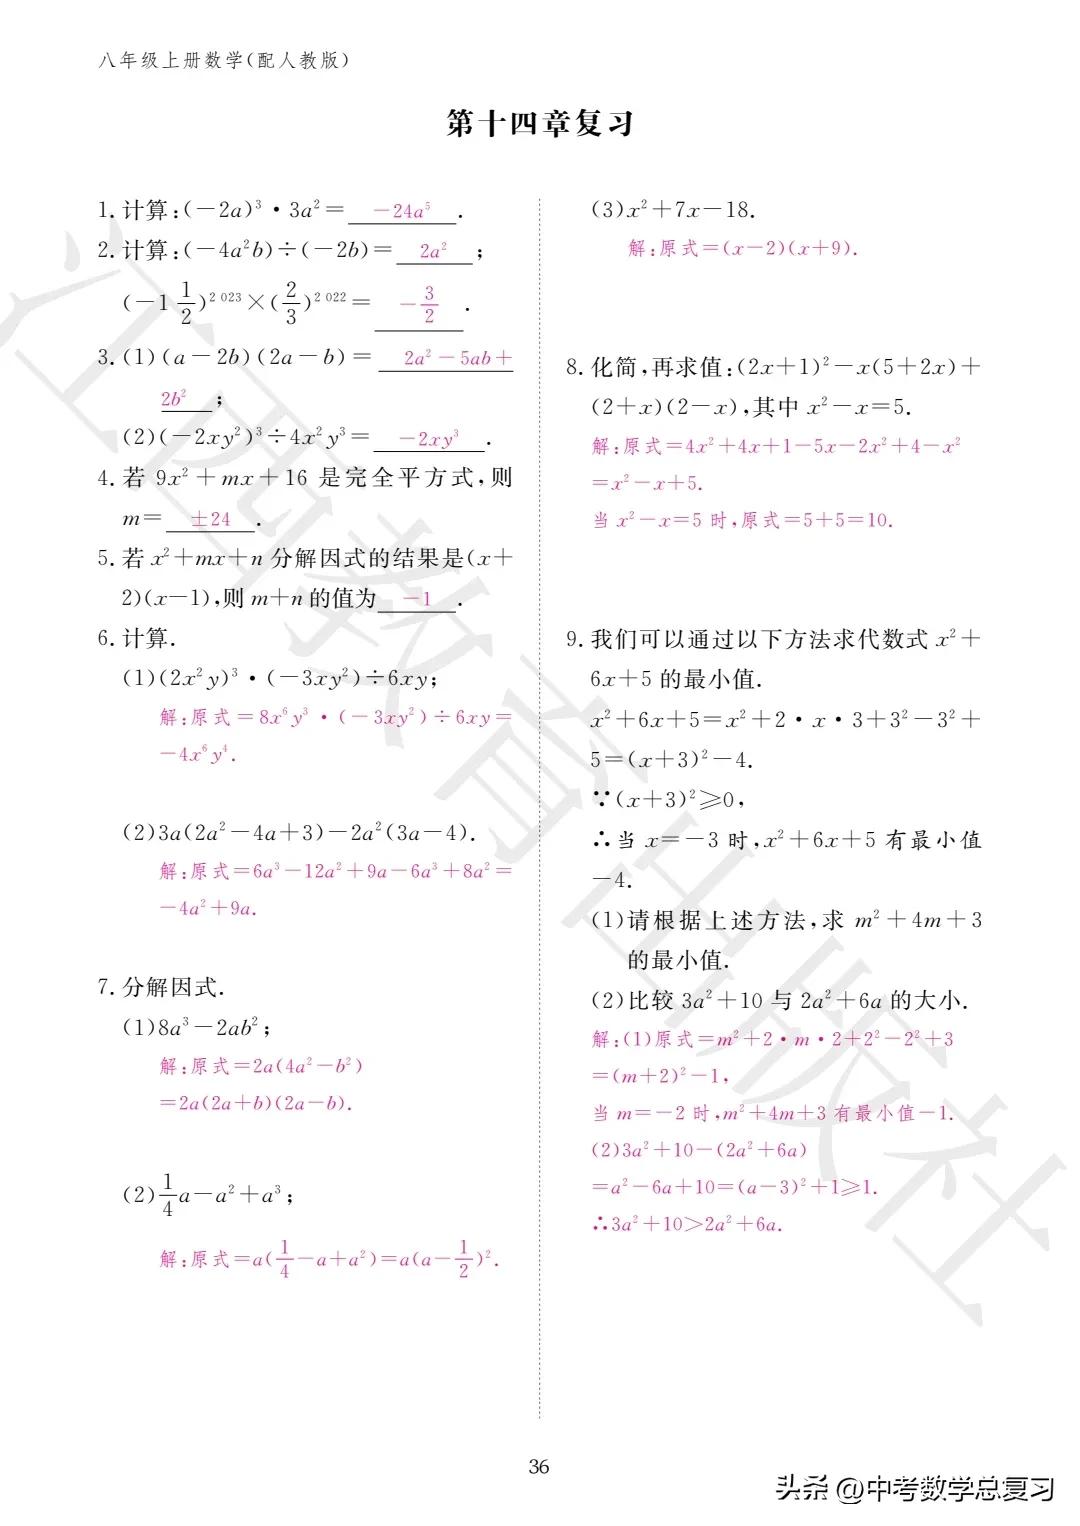 八年级上册数学(配人教版)
第十四章复习
1. 计算:(-2a)³·3a²= -24a⁵ .
2. 计算:(-4a²b)÷(-2b)= 2a² ;
(-1 1/2)²⁰²³×(2/3)²⁰²²= -3/2 .
3. (1)(a-2b)(2a-b)= 2a²-5ab+
2b² ;
(2)(-2xy²)³÷4x²y³= -2xy³ .
4. 若 9x²+mx+16 是完全平方式,则
m= ±24 .
5. 若 x²+mx+n 分解因式的结果是(x+
2)(x-1),则 m+n 的值为 -1 .
6. 计算.
(1)(2x²y)³·(-3xy²)÷6xy;
解:原式=8x⁶y³·(-3xy²)÷6xy=
-4x⁶y⁴.
(2)3a(2a²-4a+3)-2a²(3a-4).
解:原式=6a³-12a²+9a-6a³+8a²=
-4a²+9a.
7. 分解因式.
(1)8a³-2ab²;
解:原式=2a(4a²-b²)
=2a(2a+b)(2a-b).
(2)1/4a-a²+a³;
解:原式=a(1/4-a+a²)=a(a-1/2)².
(3)x²+7x-18.
解:原式=(x-2)(x+9).
8. 化简,再求值:(2x+1)²-x(5+2x)+
(2+x)(2-x),其中 x²-x=5.
解:原式=4x²+4x+1-5x-2x²+4-x²
=x²-x+5.
当 x²-x=5 时,原式=5+5=10.
9. 我们可以通过以下方法求代数式 x²+
6x+5 的最小值.
x²+6x+5=x²+2·x·3+3²-3²+
5=(x+3)²-4.
∵(x+3)²≥0,
∴当 x=-3 时,x²+6x+5 有最小值
-4.
(1)请根据上述方法,求 m²+4m+3
的最小值.
(2)比较 3a²+10 与 2a²+6a 的大小.
解:(1)原式=m²+2·m·2+2²-2²+3
=(m+2)²-1,
当 m=-2 时,m²+4m+3 有最小值-1.
(2)3a²+10-(2a²+6a)
=a²-6a+10=(a-3)²+1≥1.
∴3a²+10>2a²+6a.
江西教育出版社
36
头条 @中考数学总复习